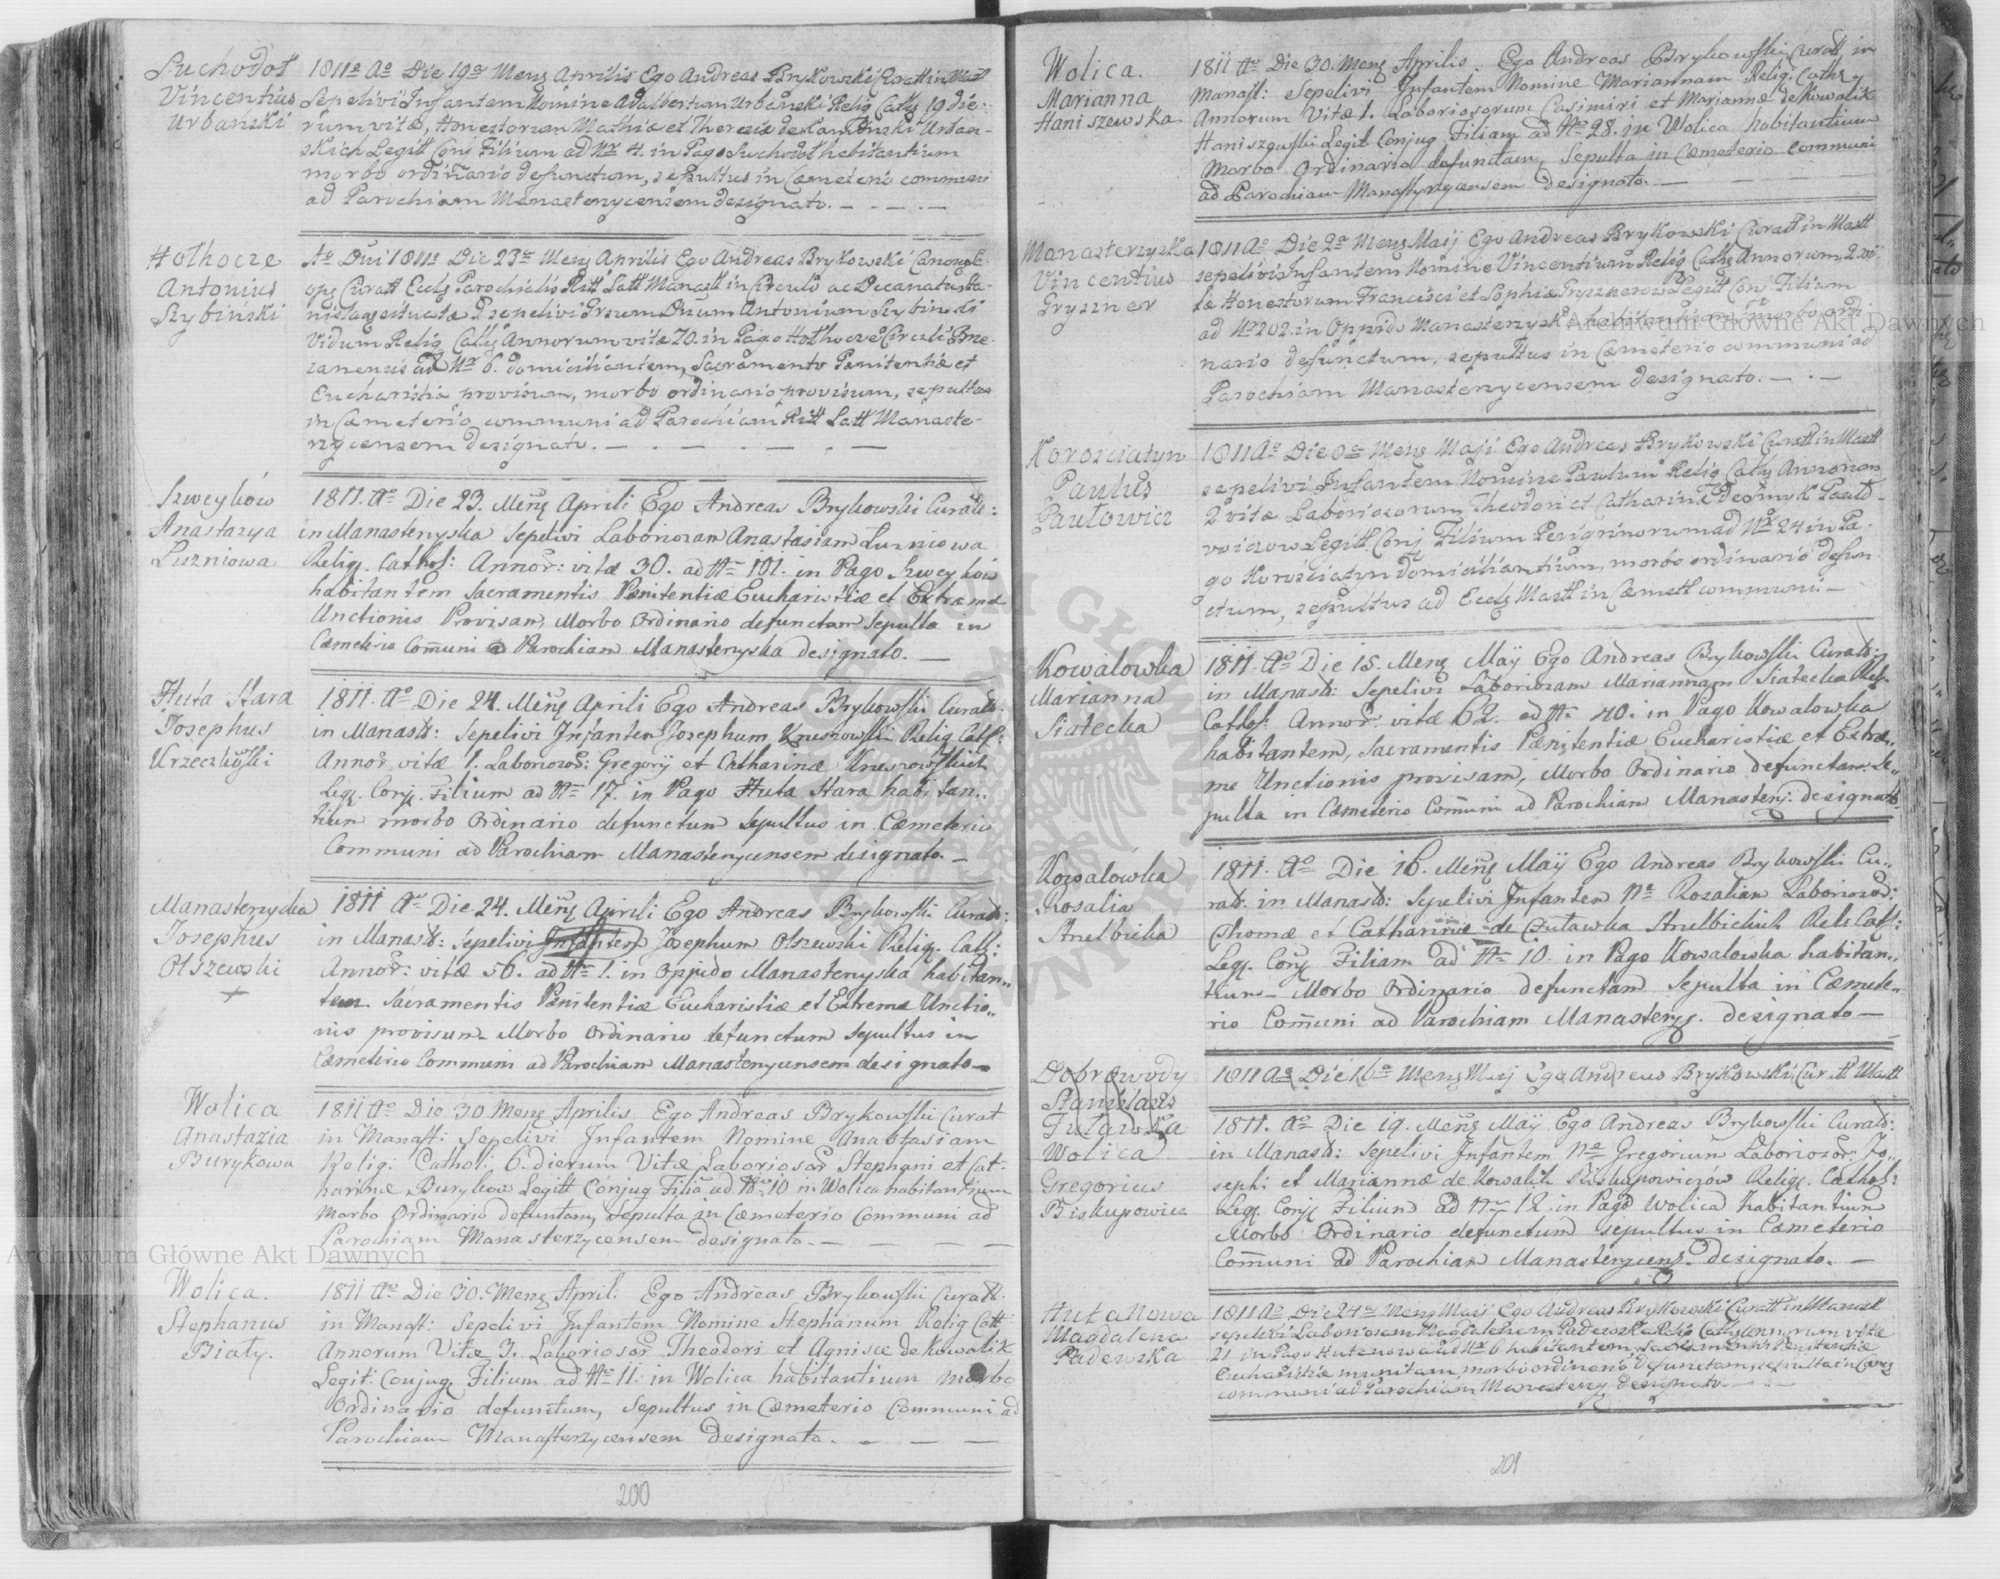 Suchodoł
Vincentius
Urbański
1811o Ao Die 19a Mens Aprilis Ego Andreas Brykowski Curatt in Mast
Sepelivi Infantem Nomine Adalbertum Urbański Relig Cath 19 die-
rum vitæ, Honestorum Mathiæ et Theresiæ de Kamiński Urban-
skich Legitt Conj Filium ad Nr 4. in Pago Suchodoł habitantium
morbo ordinario defunctum, sepultus in Cæmeterio communi
ad Parochiam Manasterzycensem designato. — - — . —
Hołhocze
Antonius
Szybiński
Ao Dni 1811o Die 23a Mens Aprilis Ego Andreas Brykowski
Curatt Eccl Parochialis Ritt Latt Manast in Circulo ac Decanatu Sta-
sepelivi Dnum Antonium Szybinski
Viduum Relig Cath Annorum vitæ 70. in Pago Hołhocze Circuli Brze-
zanensis ad Nr 6. domiciliantem, Sacramento Pænitentiæ et
Eucharistiæ provisum, morbo ordinario provisum, sepultus
in Cæmeterio communi ad Parochiam Ritt Latt Manaste-
rzycensem designato. — — — . —
Szweyków
Anastazya
Luzniowa
1811. Ao Die 23. Mens Aprili Ego Andreas Brykowski Curatt:
in Manasterzyska Sepelivi Laboriosam Anastasiam Luzniowa
Relig. Cathol: Annor: vitæ 30. ad Nr 101. in Pago Szweyków
habitantem Sacramentis Pænitentiæ Eucharistiæ et Extremæ
Unctionis Provisam, Morbo Ordinario defunctam Sepulta in
Cæmeterio Comuni ad Parochiam Manasterzyska designato. —
Huta Stara
Josephus
Krzeczkoski
1811. Ao Die 24. Mens Aprili Ego Andreas Brykowski Curatt.
in Manast: Sepelivi Infanten Josephum Relig Cath:
Annor vitæ 1. Laboriosor: Gregorij et Catharinæ
Leg. Conj. Filium ad Nr 17. in Pago Huta Stara habitan..
tium morbo Ordinario defunctum Sepultus in Cæmeterio
Communi ad Parochiam Manasterzycensem designato. —
Manasterzyska
Josephus
Olszewski
+
1811 Ao Die 24. Mens Aprili Ego Andreas Brykowski Curatt:
in Manast: Sepelivi Infanten Josephum Olszewski Relig. Cath:
Annor: vitæ 56. ad Nr 1. in Oppido Manasterzyska habitan..
tem Sacramentis Pænitentiæ Eucharistiæ et Extremæ Unctio..
nis provisum Morbo Ordinario defunctum Sepultus in
Cæmeterio Communi ad Parochiam Manasterzycensem designato —
Wolica
Anastazia
Burykowa
1811 Ao Die 30 Mens Aprilis Ego Andreas Brykowski Curat
in Manast: Sepelivi Infantem Nomine Anastasiam
Relig: Catholi 6. dierum Vitæ Laboriosor Stephani et Cat-
harinæ Burykow Legitt Conjug Filia ad Nr 10 in Wolica habitantium
Morbo Ordinario defunctam, Sepulta in Cæmeterio Communi ad
Parochiam Manasterzycensem designato. — — — —
Wolica.
Stephanus
Biały.
1811 Ao Die 30. Mens April: Ego Andreas Brykowski Curatt.
in Manast: Sepelivi Infantem Nomine Stephanum Relig Catt
Annorum Vitæ 3. Laboriosor Theodori et Agnisce de Kowalik
Legit: Conjug Filium ad Nr 11. in Wolica habitantium morbo
Ordinario defunctum, Sepultus in Cæmeterio Communi ad
Parochiam Manasterzycensem designato. — — —
200
Wolica.
Marianna
Haniszewska
1811 Ao Die 30. Mens Aprilis. Ego Andreas Brykowski Curatt in
Manast: Sepelivi Infantem Nomine Mariannam Relig: Cath
Annorum Vitæ 1. Laboriosorum Casimiri et Mariannæ de Kowalik
Legit Conjug Filiam ad Nro 28. in Wolica habitantium
Morbo Ordinario defunctam, Sepulta in Cæmeterio Communi
ad Parochiam Manasterzycensem designato. —
Manasterzyska
Vincentius
Gryszner
1811 Ao Die 2a Mens Maij Ego Andreas Brykowski Curatt in Mastt
sepelivi Infantem Nomine Vincentium Relig Cath Annorum 2 vi-
tæ Honestorum Francisci et Sophiæ Legitt Conj Filium
ad Nr 202. in Oppido Manasterzyska habitantium, morbo ordi
nario defunctum, sepultus in Cæmeterio communi ad
Parochiam Manasterzycensem designato. — . —
Korosciatyn
Paulus
Paułowicz
1811 Ao Die 8a Mens Maji Ego Andreas Brykowski Curatt in Mastt
sepelivi Infantem Nomine Paulum Relig Cath Annorum
2 vitæ Laboriosorum Theodori et Catharinæ
Legitt Conj Filium ad Nr 24 in Pa-
go Korosciatyn domiciliantium, morbo ordinario defun-
ctum, sepultus ad Eccl Mastt in Cæmett communi. —
Kowalowka
Marianna
Siatecka
1811. Ao Die 15. Mens Maÿ Ego Andreas Brykowski Curatt:
in Manast: Sepelivi Laboriosam Mariannam Siatecka Rel.
Cathol: Annor: vitæ 62. ad Nr. 40. in Pago Kowalowka
habitantem, Sacramentis Pænitentiæ Eucharistiæ et Extre..
me Unctionis provisam, Morbo Ordinario defunctam: Se..
pulta in Cæmeterio Comuni ad Parochiam Manasterz: designato.
Kowalowka
Rosalia
Strelbicka
1811. Ao Die 16. Mens Maÿ Ego Andreas Brykowski Cu..
rat. in Manast: Sepelivi Infanten Ne Rosalian Laboriosor:
Thomæ et Catharinæ de Strelbickich Reli Cath:
Leg. Conj Filiam ad Nr 10. in Pago Kowalowka habitan..
tium — Morbo Ordinario defunctam Sepulta in Cæmete..
rio Comuni ad Parochiam Manasterzy. designato —
Dobrowody
Stanislaus
Wolica
Gregorius
Biskupowicz
1811 Ao Die 16a Mens Maij Ego Andreas Brykowski Curatt Mastt
1811. Ao Die 19. Mens Maÿ Ego Andreas Brykowski Curatt:
in Manast: Sepelivi Infantem Ne Gregorium Laboriosor: Jo..
sephi et Mariannæ de Kowalik Biskupowiczów Relig. Cathol:
Leg. Conj Filium ad Nr 12. in Pago Wolica habitantium
Morbo Ordinario defunctum sepultus in Cæmeterio
Comuni ad Parochiam Manasterzycens. designato. —
Huta Nowa
Magdalena
Padewska
1811 Ao Die 24a Mens Maij Ego Andreas Brykowski Curatt in Manast
sepelivi Laboriosam Magdalenam Padewska Relig Cath Annorum vitæ
21 in Pago Huta nowa ad Nr 6 habitantem, Sacramentis Pænitentiæ
Eucharistiæ munitam, morbo ordinario defunctam, sepulta in Cæmet
communi ad Parochiam Manasterzy designato. —
201
Archiwum Główne Akt Dawnych
Archiwum Główne Akt Dawnych